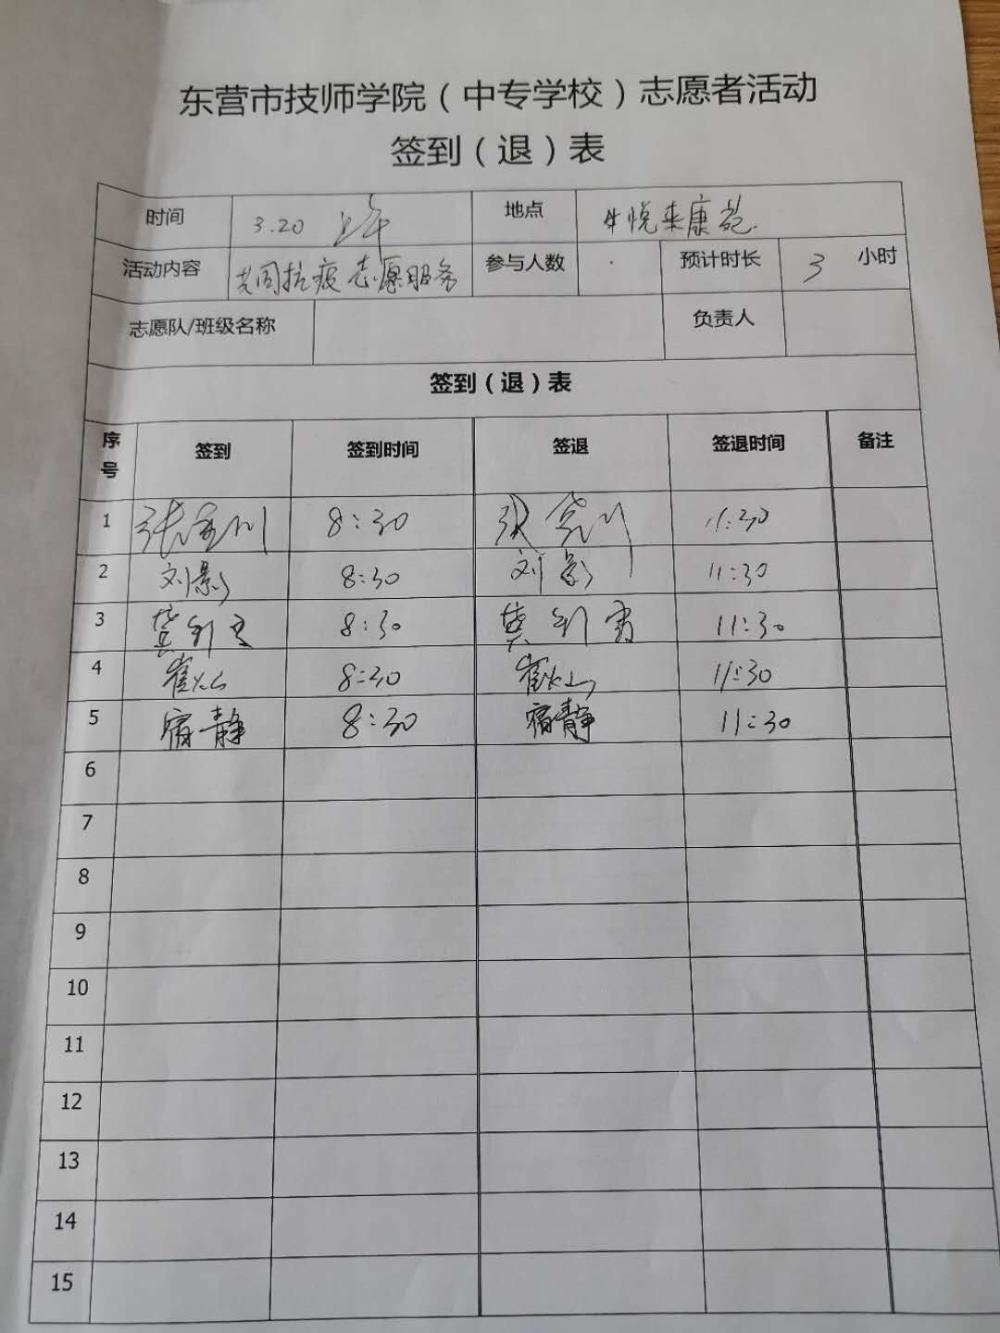 东营市技师学院（中专学校）志愿者活动
签到（退）表
时间 3.20 上午 地点 悦来康苑
活动内容 共同抗疫志愿服务 参与人数 预计时长 3 小时
志愿队/班级名称 负责人
签到（退）表
序号 签到 签到时间 签退 签退时间 备注
1 张 川 8:30 张 川 11:30
2 刘影 8:30 刘影 11:30
3 龚 8:30 龚 11:30
4 崔 8:30 崔 山 11:30
5 宿静 8:30 宿静 11:30
6
7
8
9
10
11
12
13
14
15